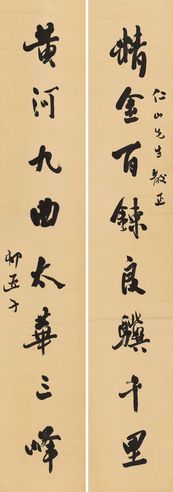 精金百鍊良驥千里
仁山先生教正
黃河九曲太華三峰